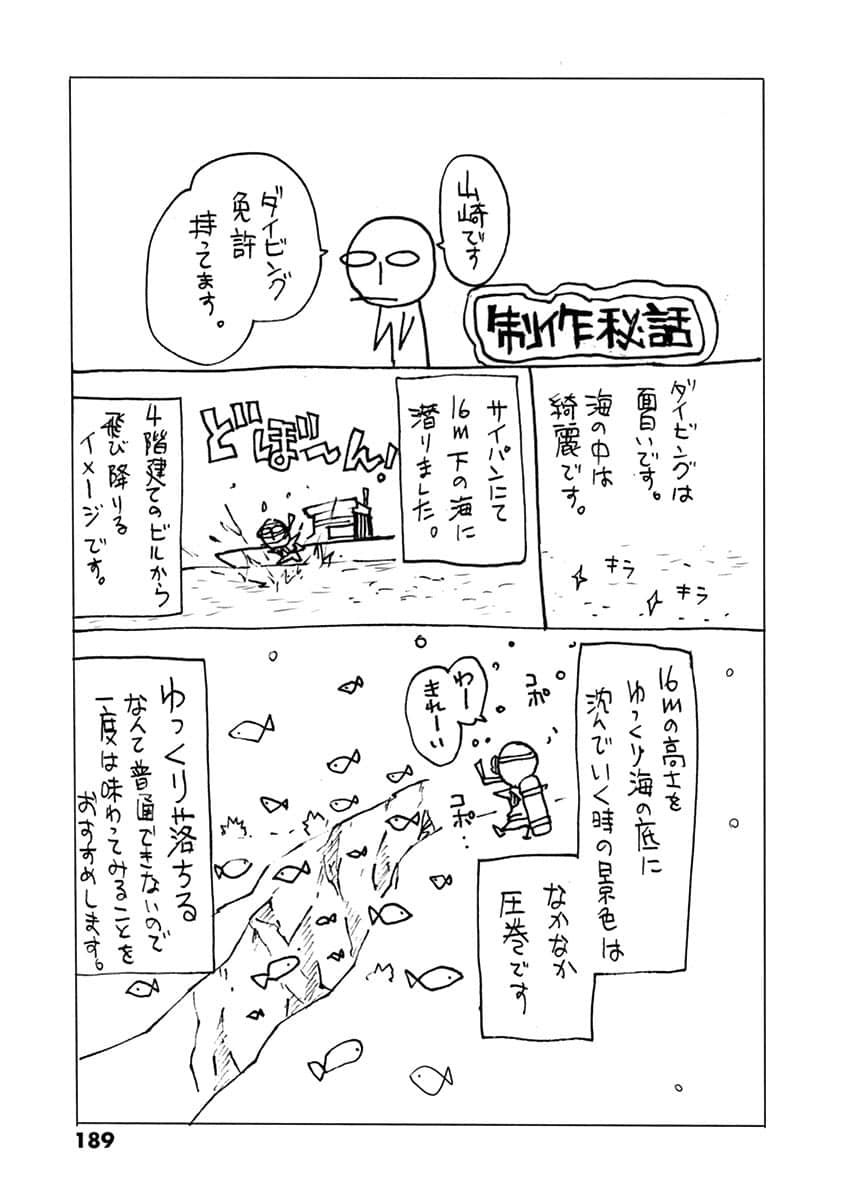 制作秘話
山崎です
ダイビング
免許
持ってます。
ダイビングは
面白いです。
海の中は
綺麗です。
キラ
キラ
サイパンにて
16m下の海に
潜りました。
どぼーん!
4階建てのビルから
飛び降りる
イメージです。
16mの高さを
ゆっくり海の底に
沈んでいく時の景色は
なかなか
圧巻です
コポ
わー
きれーい
コポ…
ゆっくり落ちる
なんて普通できないので
一度は味わってみることを
おすすめします。
189